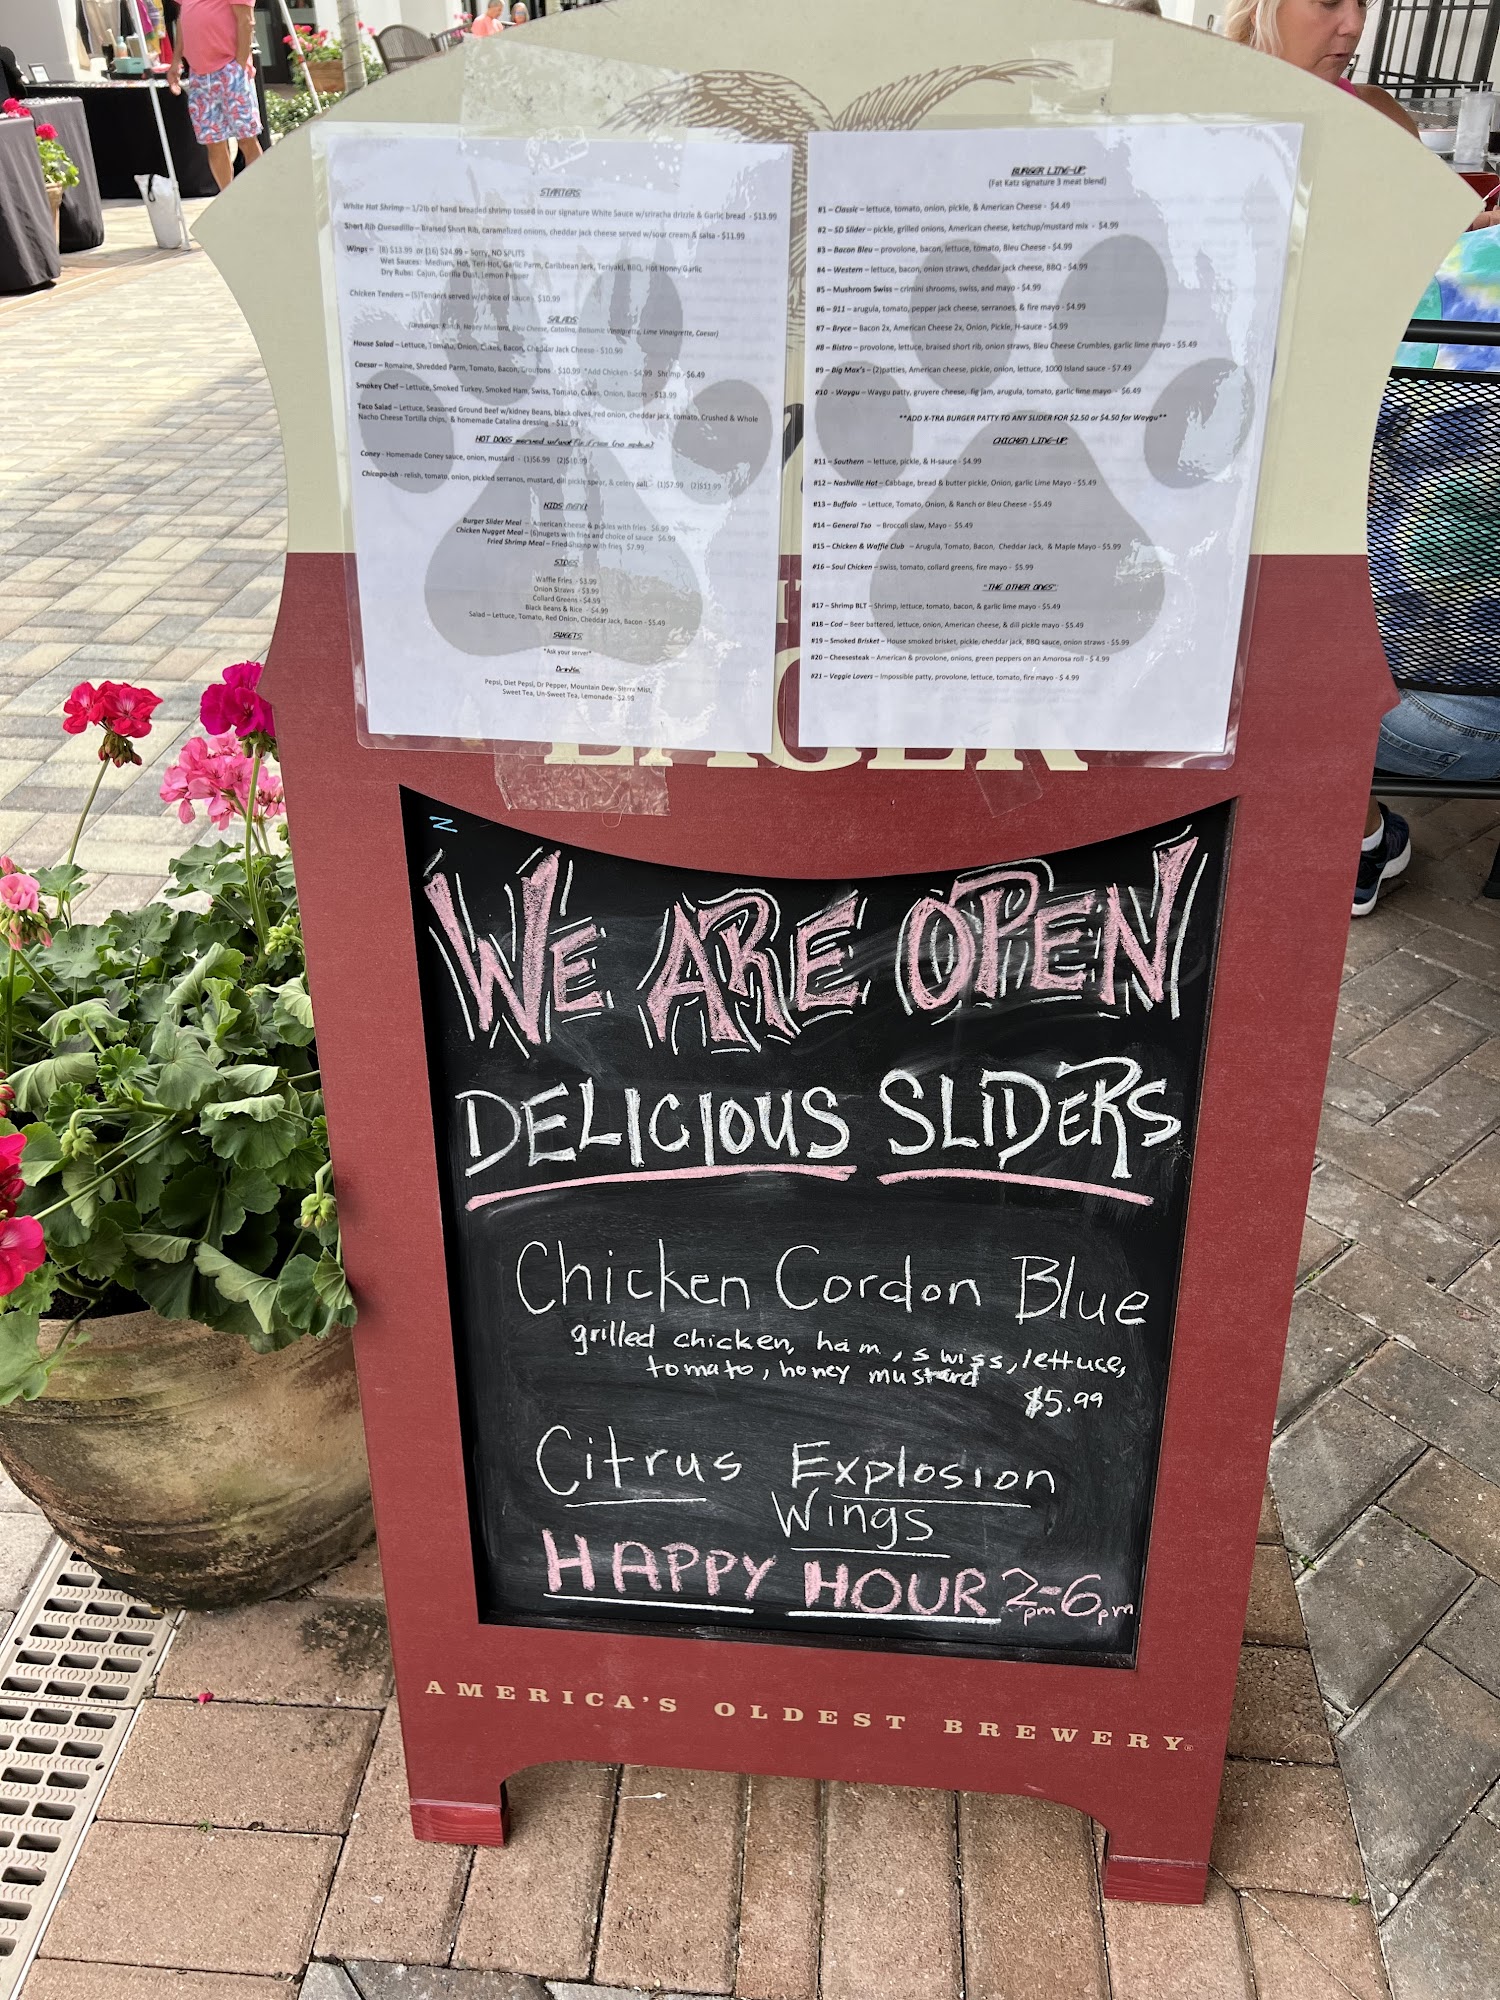 STARTERS
White Hot Shrimp – 1/2lb of hand breaded shrimp tossed in our signature White Sauce w/sriracha drizzle & Garlic bread - $13.99
Short Rib Quesadilla – Braised Short Rib, caramelized onions, cheddar jack cheese served w/sour cream & salsa - $11.99
Wings – (8) $13.99 or (16) $24.99 – Sorry, NO SPLITS
Wet Sauces: Medium, Hot, Teri-Hot, Garlic Parm, Caribbean Jerk, Teriyaki, BBQ, Hot Honey Garlic
Dry Rubs: Cajun, Gorilla Dust, Lemon Pepper
Chicken Tenders – (5)Tenders served w/choice of sauce - $10.99
SALADS
(Dressings: Ranch, Honey Mustard, Bleu Cheese, Catalina, Balsamic Vinaigrette, Lime Vinaigrette, Caesar)
House Salad – Lettuce, Tomato, Onion, Cukes, Bacon, Cheddar Jack Cheese - $10.99
Caesar – Romaine, Shredded Parm, Tomato, Bacon, Croutons - $10.99 *Add Chicken - $4.99 Shrimp - $6.49
Smokey Chef – Lettuce, Smoked Turkey, Smoked Ham, Swiss, Tomato, Cukes, Onion, Bacon - $13.99
Taco Salad – Lettuce, Seasoned Ground Beef w/kidney Beans, black olives, red onion, cheddar jack, tomato, Crushed & Whole
Nacho Cheese Tortilla chips, & homemade Catalina dressing -
HOT DOGS served w/waffle fries (no splits)
Coney - Homemade Coney sauce, onion, mustard - (1)$6.99 (2)$10.99
Chicago-ish - relish, tomato, onion, pickled serranos, mustard, dill pickle spear, & celery salt - (1)$7.99 (2)$11.99
KIDS MENU
Burger Slider Meal – American cheese & pickles with fries $6.99
Chicken Nugget Meal – (6)nugets with fries and choice of sauce $6.99
Fried Shrimp Meal – Fried Shrimp with fries $7.99
SIDES
Waffle Fries - $3.99
Onion Straws - $3.99
Collard Greens - $4.99
Black Beans & Rice - $4.99
Salad – Lettuce, Tomato, Red Onion, Cheddar Jack, Bacon - $5.49
SWEETS
*Ask your server*
Drinks
Pepsi, Diet Pepsi, Dr Pepper, Mountain Dew, Sierra Mist,
Sweet Tea, Un-Sweet Tea, Lemonade - $2.99
BURGER LINE-UP
(Fat Katz signature 3 meat blend)
#1 – Classic – lettuce, tomato, onion, pickle, & American Cheese - $4.49
#2 – SD Slider - pickle, grilled onions, American cheese, ketchup/mustard mix - $4.99
#3 – Bacon Bleu – provolone, bacon, lettuce, tomato, Bleu Cheese - $4.99
#4 – Western – lettuce, bacon, onion straws, cheddar jack cheese, BBQ - $4.99
#5 – Mushroom Swiss – crimini shrooms, swiss, and mayo - $4.99
#6 – 911 – arugula, tomato, pepper jack cheese, serranoes, & fire mayo - $4.99
#7 – Bryce – Bacon 2x, American Cheese 2x, Onion, Pickle, H-sauce - $4.99
#8 – Bistro – provolone, lettuce, braised short rib, onion straws, Bleu Cheese Crumbles, garlic lime mayo - $5.49
#9 – Big Max's – (2)patties, American cheese, pickle, onion, lettuce, 1000 Island sauce - $7.49
#10 – Waygu – Waygu patty, gruyere cheese, fig jam, arugula, tomato, garlic lime mayo - $6.49
**ADD X-TRA BURGER PATTY TO ANY SLIDER FOR $2.50 or $4.50 for Waygu**
CHICKEN LINE-UP
#11 – Southern – lettuce, pickle, & H-sauce - $4.99
#12 – Nashville Hot – Cabbage, bread & butter pickle, Onion, garlic Lime Mayo - $5.49
#13 – Buffalo – Lettuce, Tomato, Onion, & Ranch or Bleu Cheese - $5.49
#14 – General Tso – Broccoli slaw, Mayo - $5.49
#15 – Chicken & Waffle Club – Arugula, Tomato, Bacon, Cheddar Jack, & Maple Mayo - $5.99
#16 – Soul Chicken – swiss, tomato, collard greens, fire mayo - $5.99
"THE OTHER ONES"
#17 – Shrimp BLT – Shrimp, lettuce, tomato, bacon, & garlic lime mayo - $5.49
#18 – Cod – Beer battered, lettuce, onion, American cheese, & dill pickle mayo - $5.49
#19 – Smoked Brisket – House smoked brisket, pickle, cheddar jack, BBQ sauce, onion straws - $5.99
#20 – Cheesesteak – American & provolone, onions, green peppers on an Amorosa roll - $4.99
#21 – Veggie Lovers – Impossible patty, provolone, lettuce, tomato, fire mayo - $4.99
LAGER
WE ARE OPEN
DELICIOUS SLIDERS
Chicken Cordon Blue
grilled chicken, ham, swiss, lettuce,
tomato, honey mustard
$5.99
Citrus Explosion
Wings
HAPPY HOUR 2pm-6pm
AMERICA'S OLDEST BREWERY®